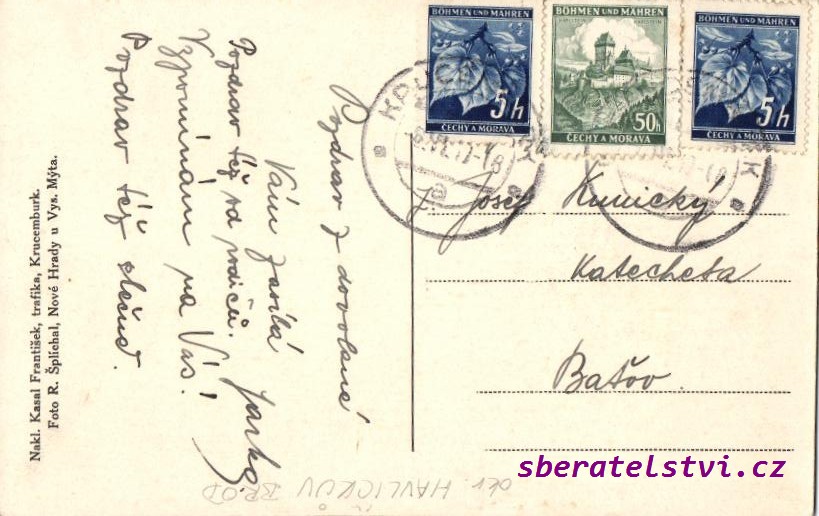 BÖHMEN UND MÄHREN
5h
ČECHY A MORAVA
BÖHMEN UND MÄHREN
50h
ČECHY A MORAVA
BÖHMEN UND MÄHREN
5h
ČECHY A MORAVA
Pozdrav z dovolené
Vám zasílá
Pozdrav též od rodičů.
Vzpomínám na Vás!
Pozdrav též slečně.
J. Josef Kunický
Katecheta
Baťov
Nakl. Kasal František, trafika, Krucemburk.
Foto R. Šplíchal, Nové Hrady u Vys. Mýta.
okr HAVLÍČKŮV BROD
sberatelstvi.cz